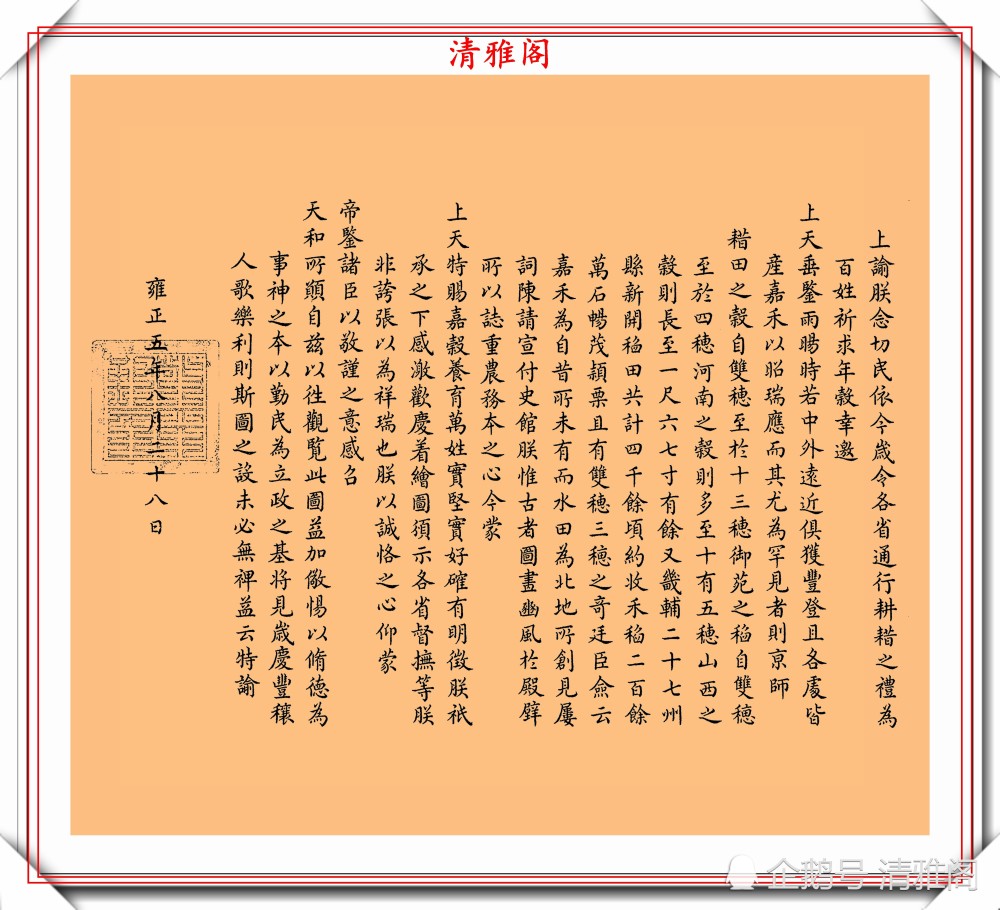 清雅阁
上諭朕念切民依今歲令各省通行耕耤之禮為
百姓祈求年穀幸邀
上天垂鑒雨暘時若中外遠近俱獲豐登且各處皆
産嘉禾以昭瑞應而其尤為罕見者則京師
耤田之穀自雙穗至於十三穗御苑之稻自雙穗
至於四穗河南之穀則多至十有五穗山西之
穀則長至一尺六七寸有餘又畿輔二十七州
縣新開稻田共計四千餘頃約收禾稻二百餘
萬石暢茂穎栗且有雙穗三穗之奇廷臣僉云
嘉禾為自昔所未有而水田為北地所創見屢
詞陳請宣付史館朕惟古者圖畫豳風於殿壁
所以誌重農務本之心今蒙
上天特賜嘉穀養育萬姓實堅實好確有明徵朕祇
承之下感激歡慶着繪圖頒示各省督撫等朕
非誇張以為祥瑞也朕以誠恪之心仰蒙
帝鑒諸臣以敬謹之意感召
天和所願自茲以往觀覽此圖益加儆惕以脩德為
事神之本以勤民為立政之基將見歲慶豐穰
人歌樂利則斯圖之設未必無裨益云特諭
雍正五年八月二十八日
企鹅号 清雅阁